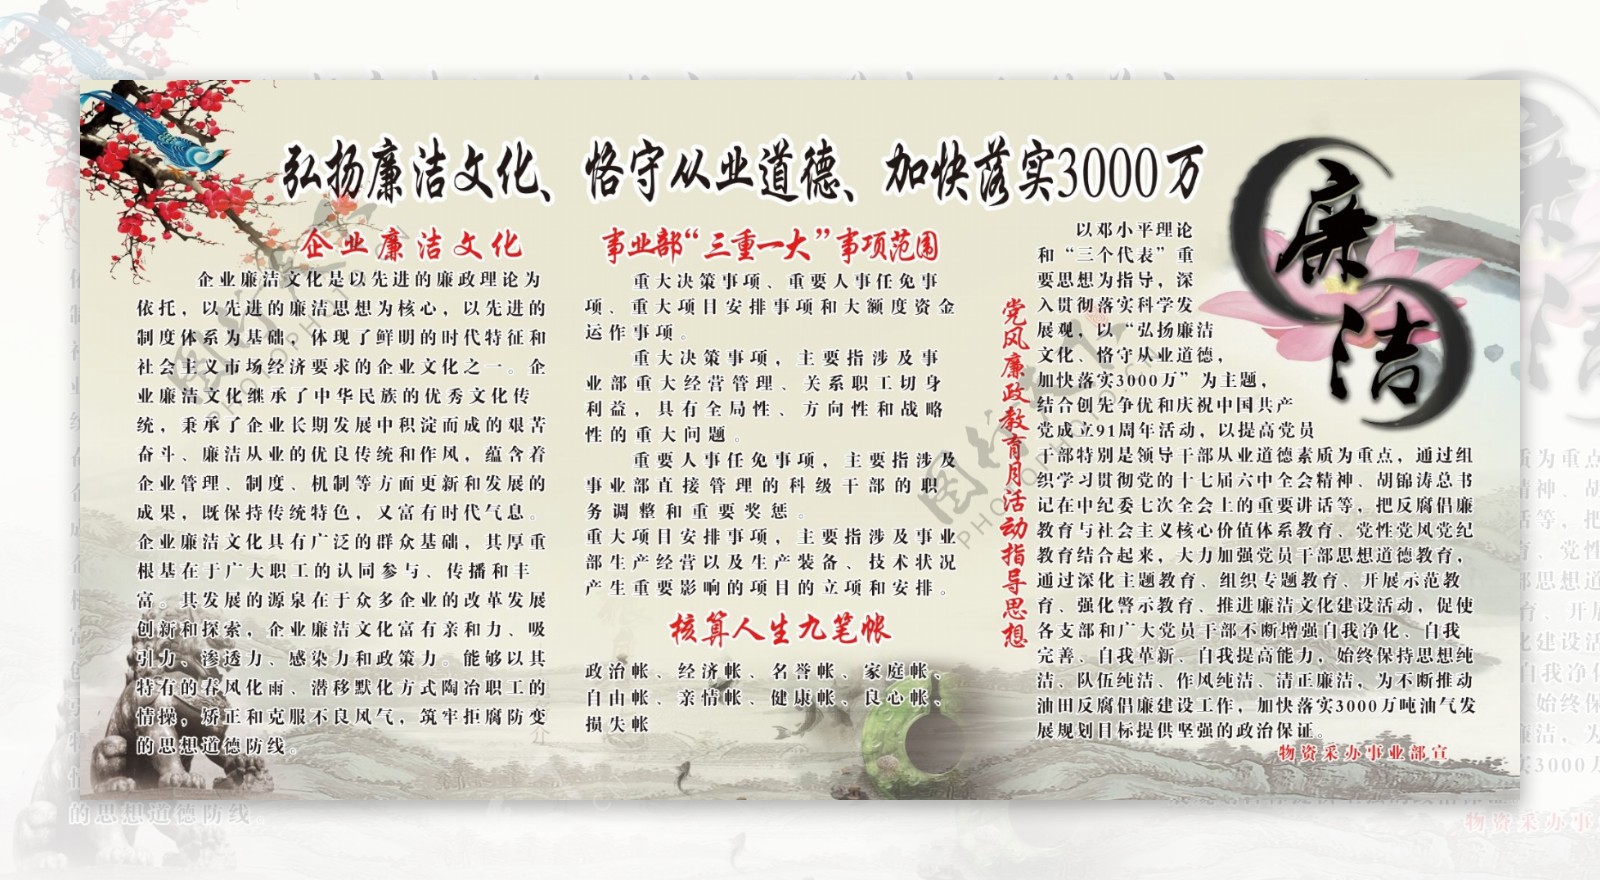 弘扬廉洁文化、恪守从业道德、加快落实3000万
企业廉洁文化
企业廉洁文化是以先进的廉政理论为
依托，以先进的廉洁思想为核心，以先进的
制度体系为基础，体现了鲜明的时代特征和
社会主义市场经济要求的企业文化之一。企
业廉洁文化继承了中华民族的优秀文化传
统，秉承了企业长期发展中积淀而成的艰苦
奋斗、廉洁从业的优良传统和作风，蕴含着
企业管理、制度、机制等方面更新和发展的
成果，既保持传统特色，又富有时代气息。
企业廉洁文化具有广泛的群众基础，其厚重
根基在于广大职工的认同参与、传播和丰
富。其发展的源泉在于众多企业的改革发展
创新和探索，企业廉洁文化富有亲和力、吸
引力、渗透力、感染力和政策力。能够以其
特有的春风化雨、潜移默化方式陶冶职工的
情操，矫正和克服不良风气，筑牢拒腐防变
的思想道德防线。
事业部“三重一大”事项范围
重大决策事项、重要人事任免事
项、重大项目安排事项和大额度资金
运作事项。
重大决策事项，主要指涉及事
业部重大经营管理、关系职工切身
利益，具有全局性、方向性和战略
性的重大问题。
重要人事任免事项，主要指涉及
事业部直接管理的科级干部的职
务调整和重要奖惩。
重大项目安排事项，主要指涉及事业
部生产经营以及生产装备、技术状况
产生重要影响的项目的立项和安排。
核算人生九笔帐
政治帐、经济帐、名誉帐、家庭帐、
自由帐、亲情帐、健康帐、良心帐、
损失帐
党风廉政教育月活动指导思想
以邓小平理论
和“三个代表”重
要思想为指导，深
入贯彻落实科学发
展观，以“弘扬廉洁
文化、恪守从业道德，
加快落实3000万”为主题，
结合创先争优和庆祝中国共产
党成立91周年活动，以提高党员
干部特别是领导干部从业道德素质为重点，通过组
织学习贯彻党的十七届六中全会精神、胡锦涛总书
记在中纪委七次全会上的重要讲话等，把反腐倡廉
教育与社会主义核心价值体系教育、党性党风党纪
教育结合起来，大力加强党员干部思想道德教育，
通过深化主题教育、组织专题教育、开展示范教
育、强化警示教育、推进廉洁文化建设活动，促使
各支部和广大党员干部不断增强自我净化、自我
完善、自我革新、自我提高能力，始终保持思想纯
洁、队伍纯洁、作风纯洁、清正廉洁，为不断推动
油田反腐倡廉建设工作，加快落实3000万吨油气发
展规划目标提供坚强的政治保证。
物资采办事业部宣
廉
洁